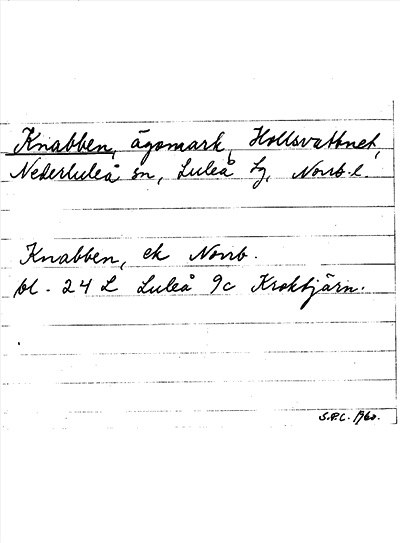 Knabben, ägomark, Hollsvattnet,
Nederluleå sn, Luleå tg, Norrb. l.
Knabben, ek Norrb.
bl. 24 L Luleå 9c Kroktjärn.
S.P.L. 1960.